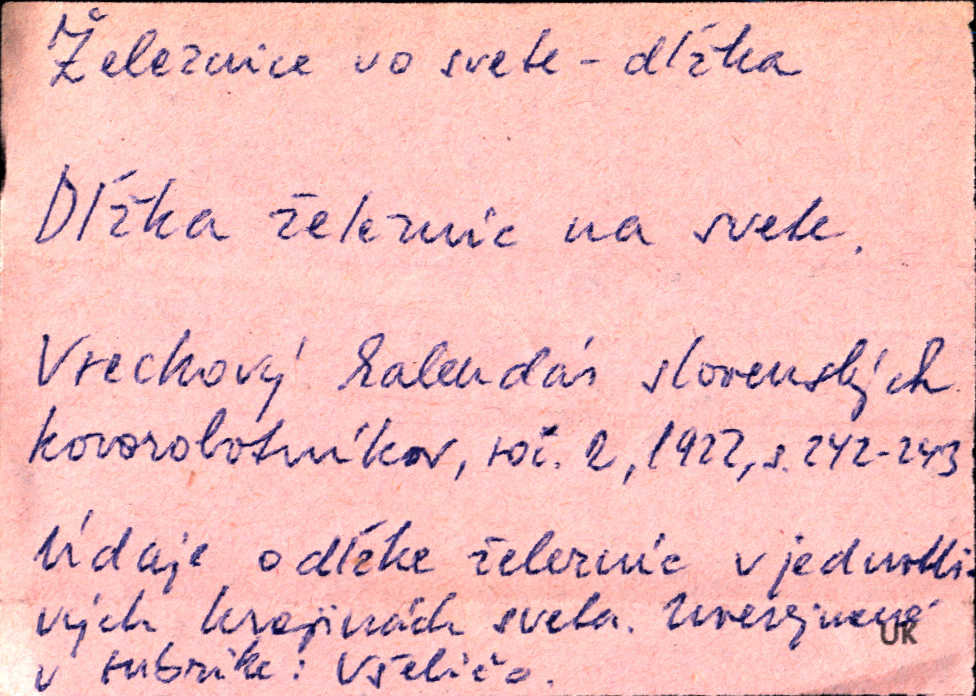 Železnice vo svete - dĺžka
Dĺžka železníc na svete.
Vreckový kalendár slovenských
kovorobotníkov, roč. 2, 1922, s. 242-243
Údaje o dĺžke železníc v jednotli-
vých krajinách sveta. Uverejnené
v rubrike: Všeličo.
UK